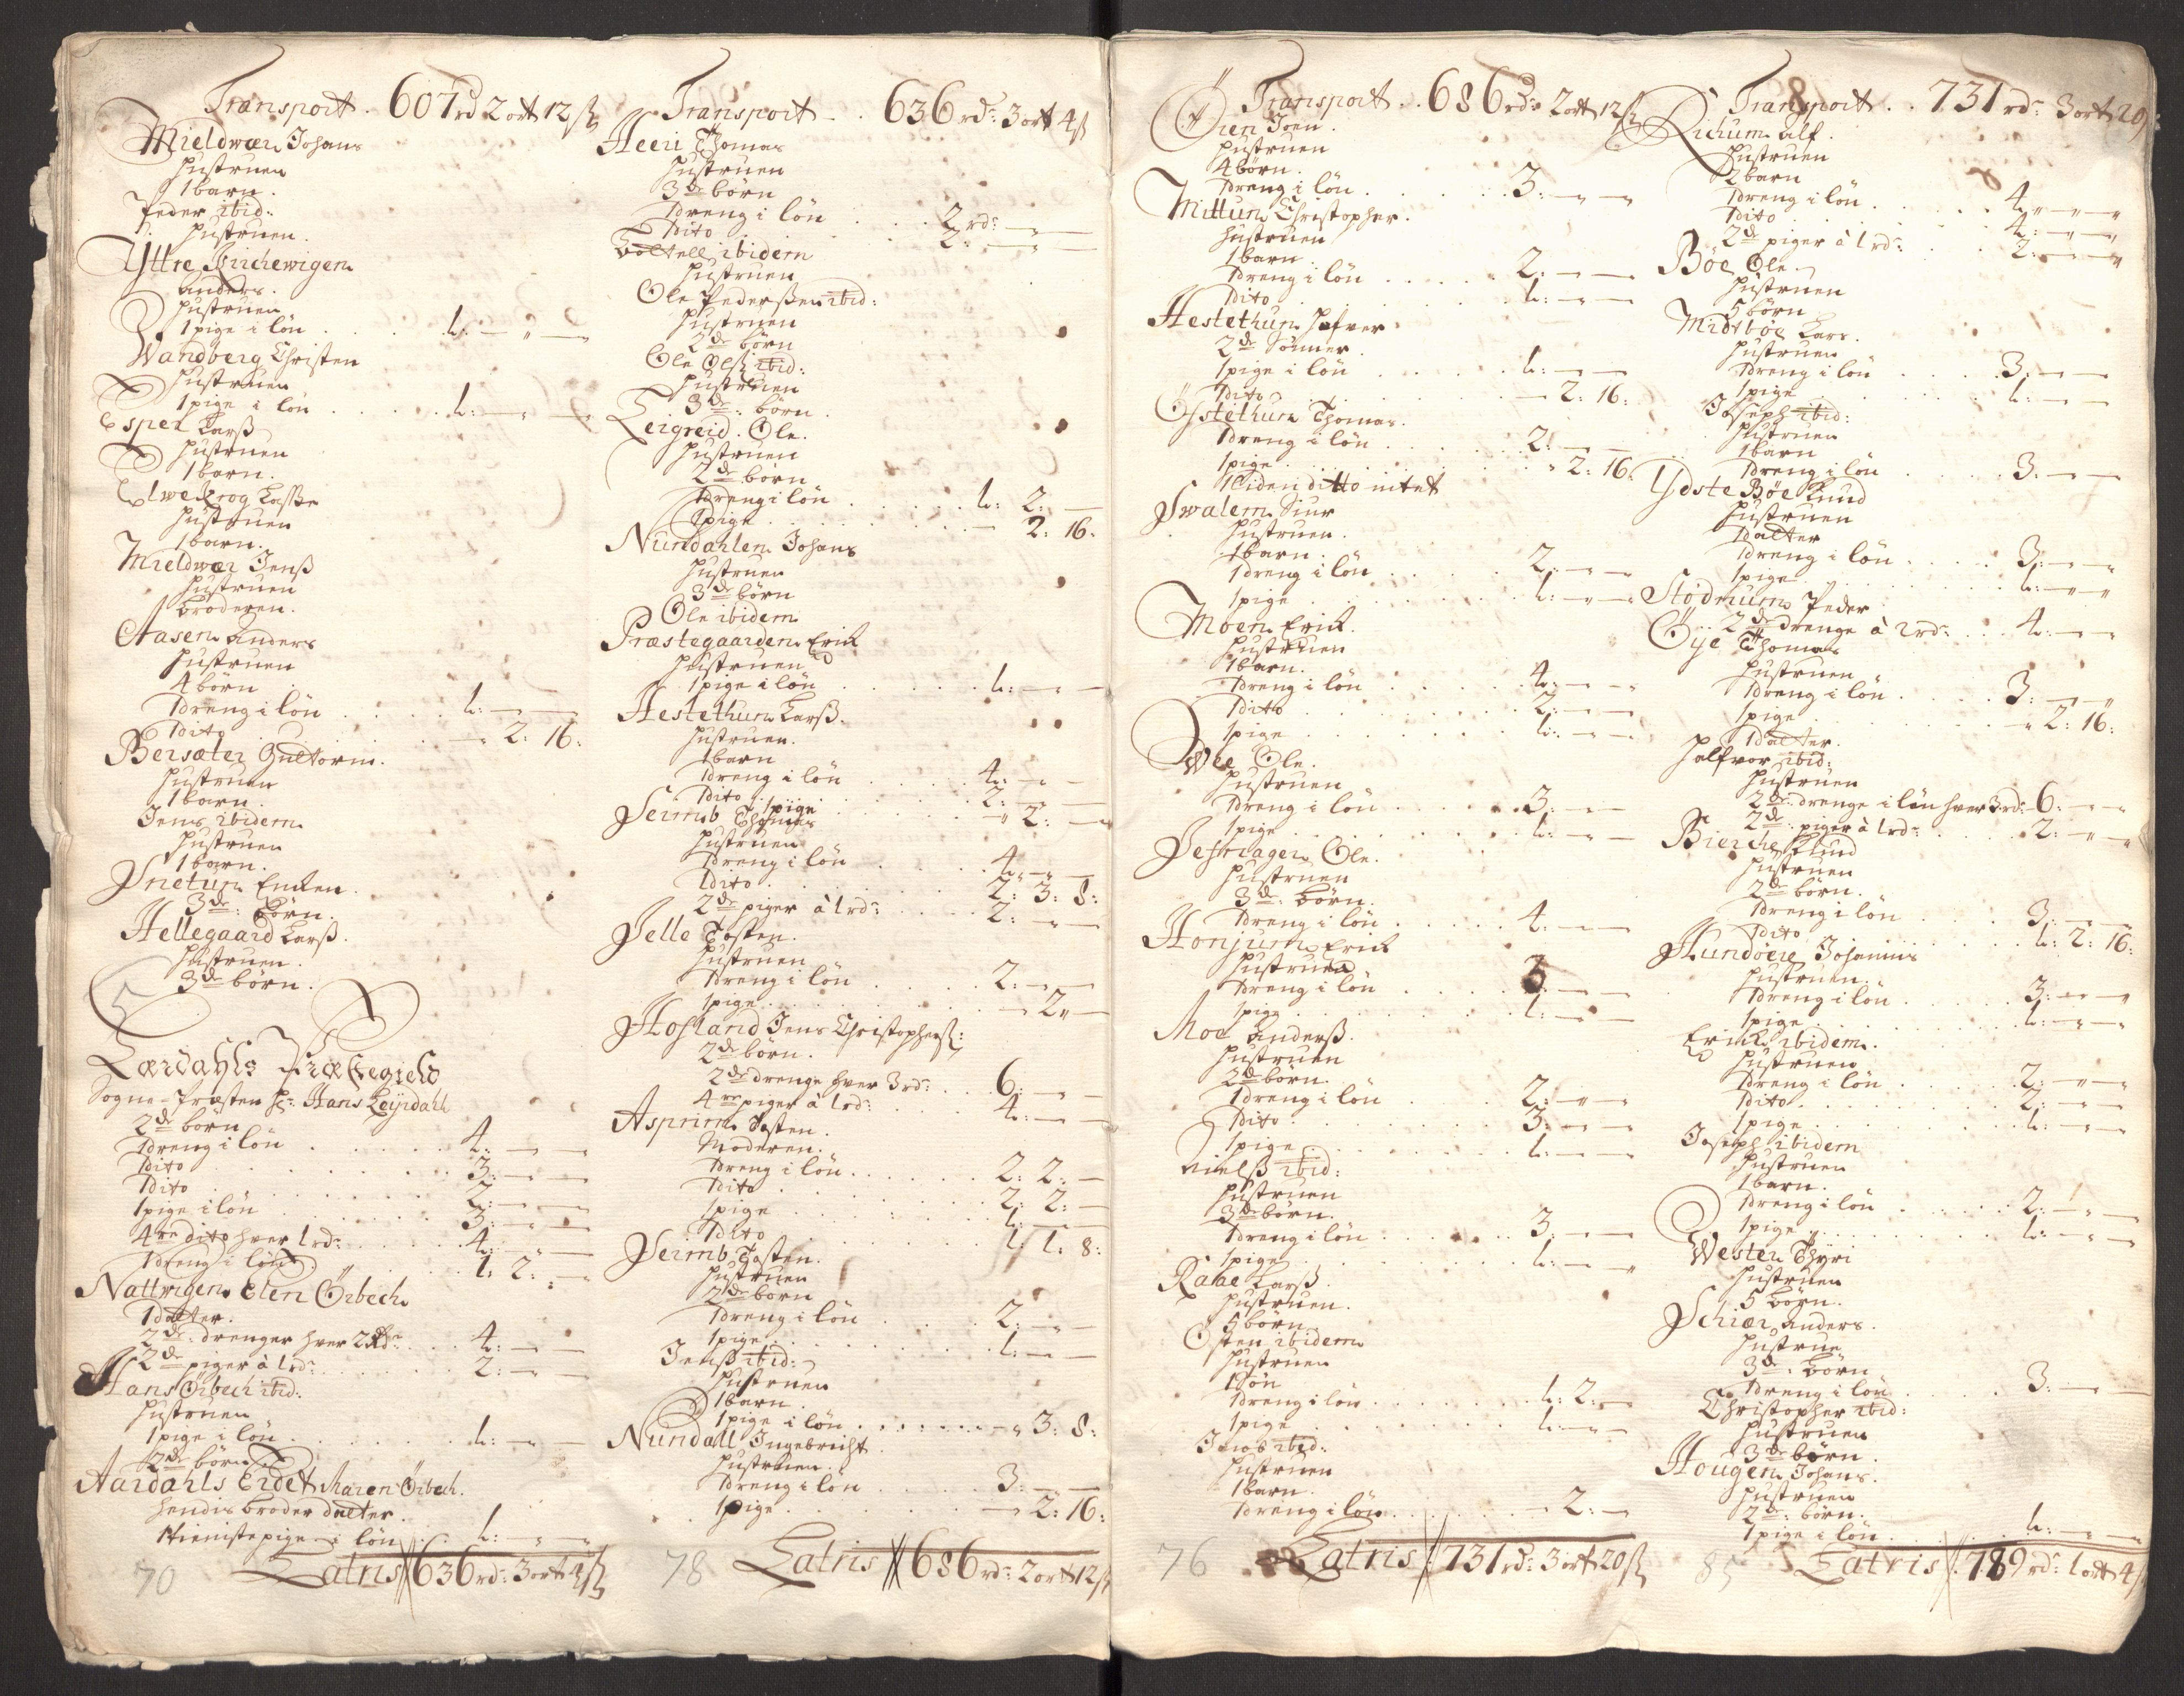 Transport . 607 rd 2 ort 12 ß
Mieldwær Johans
Hustruen
1 barn.
Peder ibid:
Hustruen.
Yttre Birchewigen
anders.
Hustruen
1 pige i lön . . . 1: — " —
Wandberg Christen
Hustruen
1 pige i lön . . . 1: — —
Esper Larß
Hustruen
1 barn.
Elwekrog Laße
Hustruen
1 barn.
Mieldwær Jenß
Hustruen
broderen.
Aasen anders
Hustruen
4 börn
1 dreng i lön . . . 1: — —
1 dito . . . — " 2: 16:
Bersæter Guttorm.
Hustruen
1 barn.
Jens ibidem
Hustruen
1 barn.
Snetun Enken.
3de: Börn.
Hellegaard Larß.
Hustruen.
3de börn.
Lærdahls Præstegield
Sogne-Præsten Hr: Hans Leyrdahl
2de börn
1 dreng i lön . . . 4: — —
1 dito . . . 3: — —
1 dito . . . 2: — —
1 pige i lön . . . 3: — —
4re dito hver 1 rd: . . . 4: — —
1 dreng i lön . . . 1: 2: —
Nattwigen Elen Örbech
1 datter.
2de: drenger hver 2 rdr . . . 4: — —
2de piger à 1 rd: . . . 2: — —
Hans Örbech ibid:
Hustruen
1 pige i lön . . . 1: — —
2de börn
Aardahls Eidet Maren Örbech.
hendis broder datter.
1 tienistepige i lön . . . 1: " "
70 Latris 636 rd: 3 ort 4 ß
Transport . . 636 rd: 3 ort 4 ß
Heeri Thomas
Hustruen
3de börn
1 dreng i lön . . . 2 rd: — —
1 dito . . . 2: — —
Boltell ibidem
Hustruen
Ole Pederßen ibid:
Hustruen
2de börn
Ole Olß ibid:
Hustruen
3de: börn.
Leigreid. Ole.
Hustruen
2de börn
1 dreng i lön . . . 1: 2: —
1 pige . . . — 2: 16:
Nundahlen Johans
Hustruen
3de börn
Ole ibidem
Præstegaarden Erik
Hustruen
1 pige i lön . . . 1: — —
Hestethun Larß.
Hustruen.
1 barn
1 dreng i lön . . . 4: — —
1 dito . . . 2: — —
1 pige . . . — " 2: —
Seimb Thomas
Hustruen
1 dreng i lön . . . 4: " —
1 dito . . . 2: 3: 8:
2de piger à 1 rd: . . . 2: — —
Selle Tosten.
Hustruen
1 dreng i lön . . . 2: — —
1 pige . . . — 2 " —
Hofland Jens Christophersß:
2de börn.
2de drenge hver 3 rd: . . . 6: — —
4re piger à 1 rd: . . . 4: — —
Asprim Tosten.
Moderen.
1 dreng i lön . . . 2: 2: —
1 dito . . . 2: 2: —
1 pige . . . 1: — —
1 dito . . . 1: 1: 8:
Seimb Tosten.
Hustruen
2de born
1 dreng i lön . . . 2: — —
1 pige . . . 1: — —
Jenß ibid:
Hustruen
1 barn.
1 pige i lön . . . — " 3: 8:
Nundall Ingebricht.
Hustruen.
1 dreng i lön . . . 3: — —
1 pige . . . — 2: 16:
78 Latris 686 rd: 2 ort 12 ß
Transport . . 686 rd: 2 ort 12 ß
Öien Joen.
Hustruen
4 börn.
1 dreng i lön . . . 3: — —
Mittun Christopher.
Hustruen
1 barn
1 dreng i lön . . . 2: — —
1 dito . . . 1: — —
Hestethun Hafver
2de Sönner.
1 pige i lön . . . 1: — —
1 dito . . . — 2: 16:
Östethun Thomas.
1 dreng i lön . . . 2: — —
1 pige . . . " 2: 16:
1 liden ditto intet
Swalem Siur
Hustruen.
1 barn.
1 dreng i lön . . . 2: — —
1 pige . . . 1: — —
Moen Erik.
Hustruen
1 barn.
1 dreng i lön . . . 4: — —
1 dito . . . 2: — —
1 pige . . . 1: — —
Wee Ole.
Hustruen
1 dreng i lön . . . 3: — —
1 pige . . . 1: — —
Schiager Ole.
Hustruen
3de: börn.
1 dreng i lön . . . 4: — —
Honjum Erik
Hustruen
1 dreng i lön . . . 3: — —
1 pige . . . 1: — —
Moe Anderß.
Hustruen
2de börn.
1 dreng i lön . . . 2: — —
1 dito . . . 3: — —
1 pige . . . 1: — —
Nielß ibid:
Hustruen
3de börn.
1 dreng i lön . . . 3: — —
1 pige . . . 1: — "
Raae Larß.
Hustruen.
5 börn.
Östen ibidem
Hustruen
1 Sön
1 dreng i lön . . . 1: 2: —
1 pige . . . 1: — —
Jacob ibid:
Hustruen
1 barn.
1 dreng i lön . . . — 2: —
76 Latris: 731 rd: 3 ort 20 ß
Transport . . 731 rd: 3 ort 20
Richum alf.
Hustruen
2 barn
1 dreng i lön . . . 4: " —
1 dito . . . 4: — —
2de piger à 1 rd: . . . 2: — "
Böe Ole.
Hustruen
5 börn
Midtböe Lars.
Hustruen
1 dreng i lön . . . 3: — —
1 pige . . . 1: — —
Joseph ibid:
Hustruen
1 barn
1 dreng i lön . . . 3: — —
Ydste Böe Knud
Hustruen
1 datter
1 dreng i lön . . . 3: — "
1 pige . . . 1: — "
Stödnum Peder
2de drenge à 2 rd: . . . 4: — —
Öye Thomas
Hustruen
1 dreng i lön . . . 3: — "
1 pige . . . " 2: 16:
1 datter.
Halfvor ibid:
Hustruen
2de: drenge i lön hver 3 rd: 6: — —
2de: piger à 1 rd: . . . 2: — "
Bierche Knud
Hustruen
2de börn.
1 dreng i lön . . . 3: — —
1 dito . . . 1: 2: 16:
Hundöere Johannis
Hustruen.
1 dreng i lön . . . 3: — —
1 pige . . . 1: — —
Erik ibidem.
Hustruen
1 dreng i lön . . . 2: — —
1 dito . . . 2: — —
1 pige . . . 1: — —
Joseph ibidem
Hustruen
1 barn.
1 dreng i lön . . . 2: — —
1 pige . . . 1: — —
Wester Thyri
Hustruen
5 börn.
Schiær anders.
Hustrue
3de: börn
1 dreng i lön . . . 3: — —
Christopher ibid:
Hustruen
3de börn.
Hougen Johans.
Hustruen
2de: börn.
1 pige i lön . . . 1: — —
85 Latris: 789 rd: 1 ort 4 ß